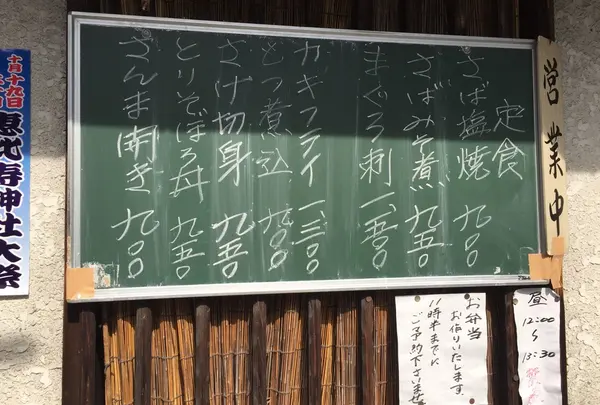 定食
さば塩焼 九〇〇
さばみそ煮 九五〇
まぐろ刺 一、五〇〇
カキフライ 一、三〇〇
もつ煮込 九〇〇
さけ切身 九五〇
とりそぼろ丼 九五〇
さんま開き 九〇〇
営業中
十月十九日
恵比寿神社大祭
お弁当
お作りいたします。
11時半までに
ご予約下さいませ
昼
12:00
〜
13:30